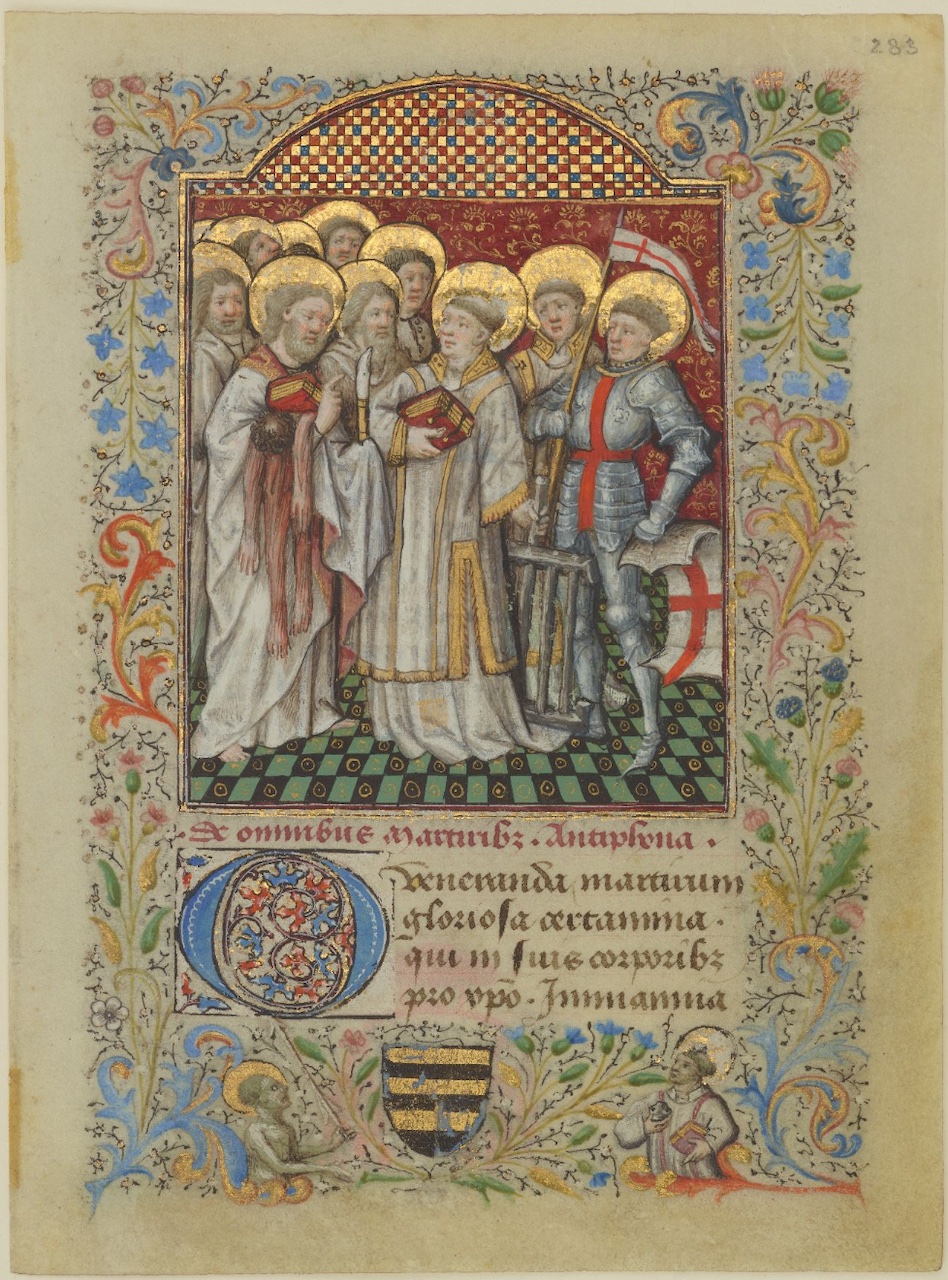 283
De omnibus Martiribz. Antiphona.
O veneranda martirum
gloriosa certamina.
qui in suis corporibz
pro xpo. Inmiania